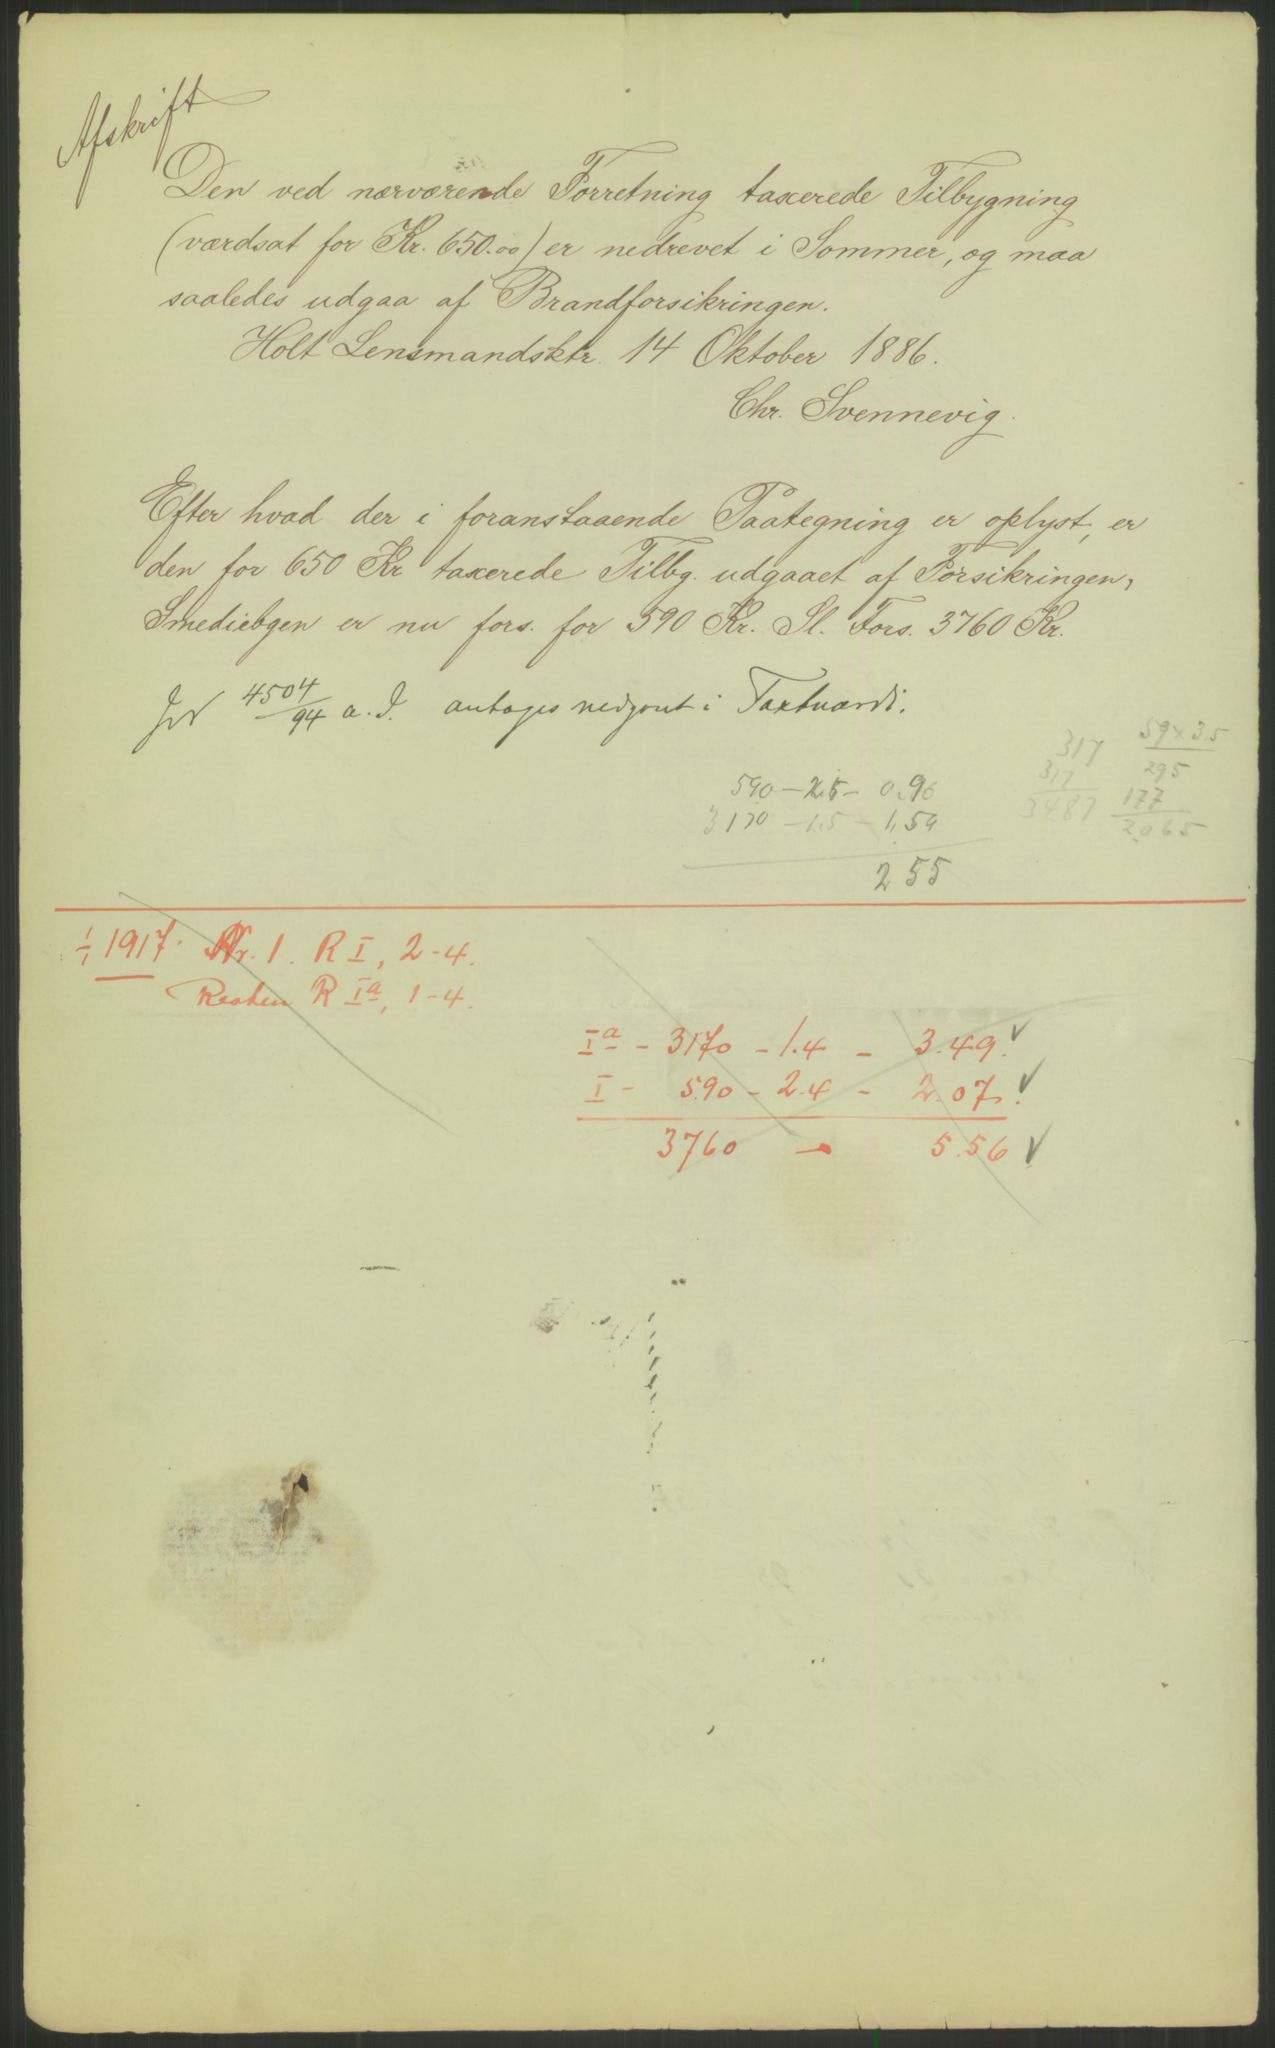 Afskrift
Den ved nærværende Forretning taxerede Tilbygning
(værdsat for Kr. 650.00) er nedrevet i Sommer, og maa
saaledes udgaa af Brandforsikringen.
Holt Lensmandsktr. 14 Oktober 1886.
Chr. Svennevig.
Efter hvad der i foranstaaende Paategning er oplyst, er
den for 650 Kr taxerede Tilbg. udgaaet af Forsikringen,
Smediebgen er nu fors. for 590 Kr. Sl. Fors. 3760 Kr.
4504/94 a. I. antages nedgaaet i Taxtværdi.
317
317
3487
59 x 3.5
295
177
2065
590 - 2.5 - 0.96
3170 - 1.5 - 1.59
2 55
1/1 1917. Nr. 1. R I, 2-4.
Resten R Ia, 1-4.
Ia - 3170 - 1.4 - 3.49.
I - 590 - 2.4 - 2.07.
3760 - 5.56